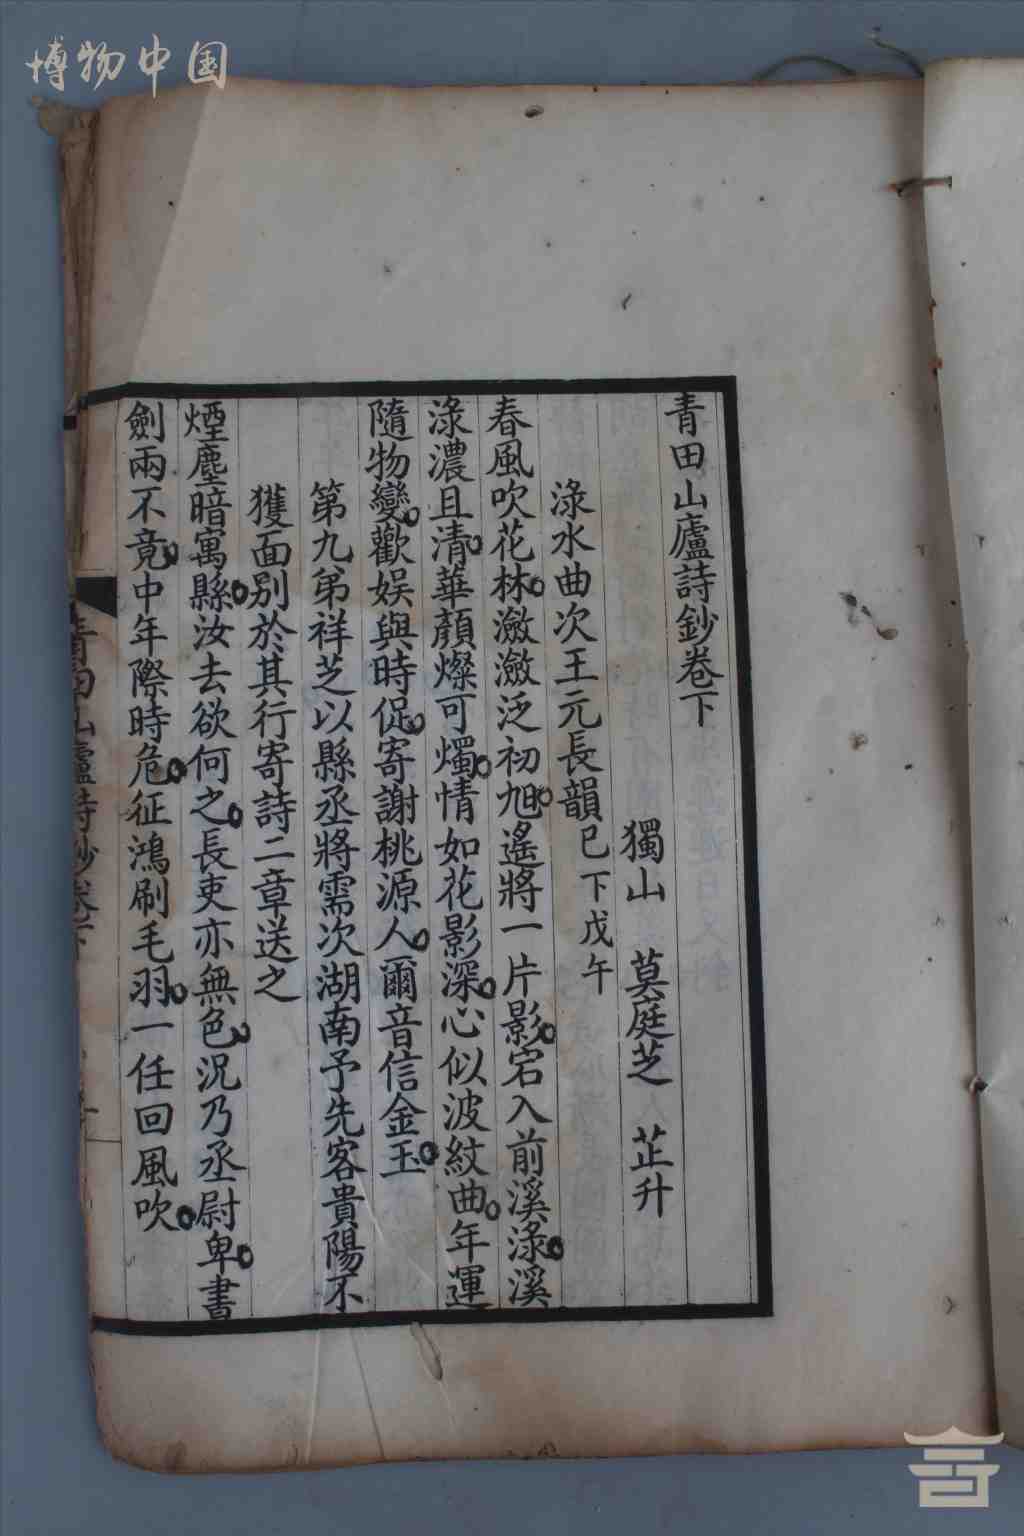 博物中国
青田山廬詩鈔卷下
獨山 莫庭芝 芷升
淥水曲次王元長韻已下戊午
春風吹花林瀲瀲泛初旭遙將一片影宕入前溪淥溪
淥濃且清華顏燦可燭情如花影深心似波紋曲年運
隨物變歡娛與時促寄謝桃源人爾音信金玉
第九弟祥芝以縣丞將需次湖南予先客貴陽不
獲面別於其行寄詩二章送之
煙塵暗寓縣汝去欲何之長吏亦無色況乃丞尉卑書
劍兩不竟中年際時危征鴻刷毛羽一任回風吹
青田山廬詩鈔卷下